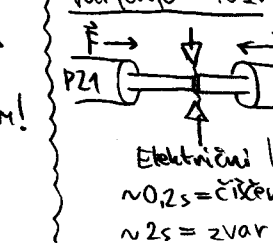 F
PZ1
M!
Električni
~0,2s = čišćen
~2s = zvar